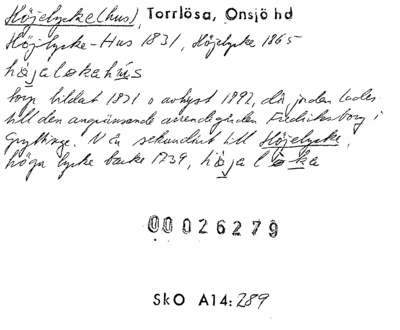 Höjelycke(hus), Torrlösa, Onsjö hd
Höjlycke-Hus 1831, Höjelycke 1865
höjalökahús
Torp bildat 1831 o avhyst 1892, då jorden lades
till den angränsande arrendegården Fredriksborg i
Gryttinge. N är sekundärt till Höjelycke,
högn lycke backe 1739, höjalöka
00026279
SkO A14:289